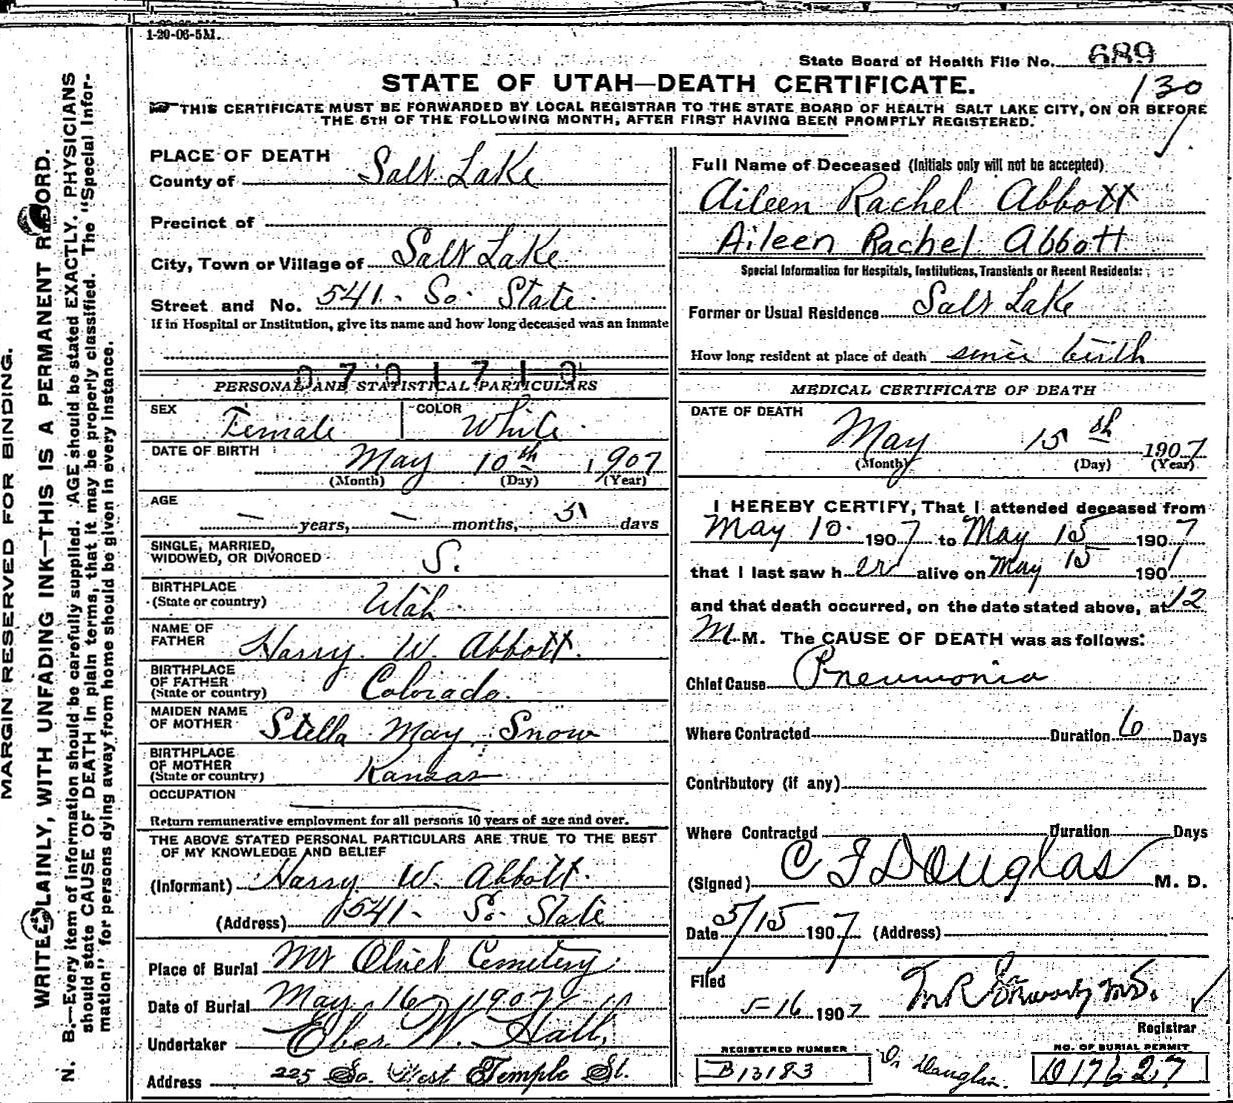 1-20-06-5M.
State Board of Health File No. 689
130
STATE OF UTAH—DEATH CERTIFICATE.
THIS CERTIFICATE MUST BE FORWARDED BY LOCAL REGISTRAR TO THE STATE BOARD OF HEALTH SALT LAKE CITY, ON OR BEFORE
THE 5TH OF THE FOLLOWING MONTH, AFTER FIRST HAVING BEEN PROMPTLY REGISTERED.
MARGIN RESERVED FOR BINDING.
WRITE PLAINLY, WITH UNFADING INK—THIS IS A PERMANENT RECORD.
N. B.—Every item of information should be carefully supplied. AGE should be stated EXACTLY. PHYSICIANS
should state CAUSE OF DEATH in plain terms, that it may be properly classified. The "Special Infor-
mation" for persons dying away from home should be given in every instance.
PLACE OF DEATH
County of Salt Lake
Precinct of
City, Town or Village of Salt Lake
Street and No. 541 - So. State
If in Hospital or Institution, give its name and how long deceased was an inmate
PERSONAL AND STATISTICAL PARTICULARS
SEX Female
COLOR White
DATE OF BIRTH May 10th 1907
(Month) (Day) (Year)
AGE
— years, — months, 5 days
SINGLE, MARRIED,
WIDOWED, OR DIVORCED S.
BIRTHPLACE
(State or country) Utah
NAME OF
FATHER Harry W. Abbott
BIRTHPLACE
OF FATHER
(State or country) Colorado.
MAIDEN NAME
OF MOTHER Stella May Snow
BIRTHPLACE
OF MOTHER
(State or country) Kansas
OCCUPATION
Return remunerative employment for all persons 10 years of age and over.
THE ABOVE STATED PERSONAL PARTICULARS ARE TRUE TO THE BEST
OF MY KNOWLEDGE AND BELIEF
(Informant) Harry W. Abbott.
(Address) 541 - So. State
Place of Burial Mt Olivet Cemetery
Date of Burial May 16 1907
Undertaker Eber W. Hall,
Address 225 So. West Temple St.
Full Name of Deceased (Initials only will not be accepted)
Aileen Rachel Abbott
Aileen Rachel Abbott
Special Information for Hospitals, Institutions, Transients or Recent Residents:
Former or Usual Residence Salt Lake
How long resident at place of death since birth
MEDICAL CERTIFICATE OF DEATH
DATE OF DEATH
May 15th 1907
(Month) (Day) (Year)
I HEREBY CERTIFY, That I attended deceased from
May 10 1907 to May 15 1907
that I last saw her alive on May 15 1907
and that death occurred, on the date stated above, at 12
M. M. The CAUSE OF DEATH was as follows:
Chief Cause Pneumonia
Where Contracted Duration 6 Days
Contributory (if any)
Where Contracted Duration Days
(Signed) C F Douglas M. D.
Date 5/15 1907 (Address)
Filed
5-16 1907
Registrar
REGISTERED NUMBER
B13183
Dr Douglas.
NO. OF BURIAL PERMIT
D17627